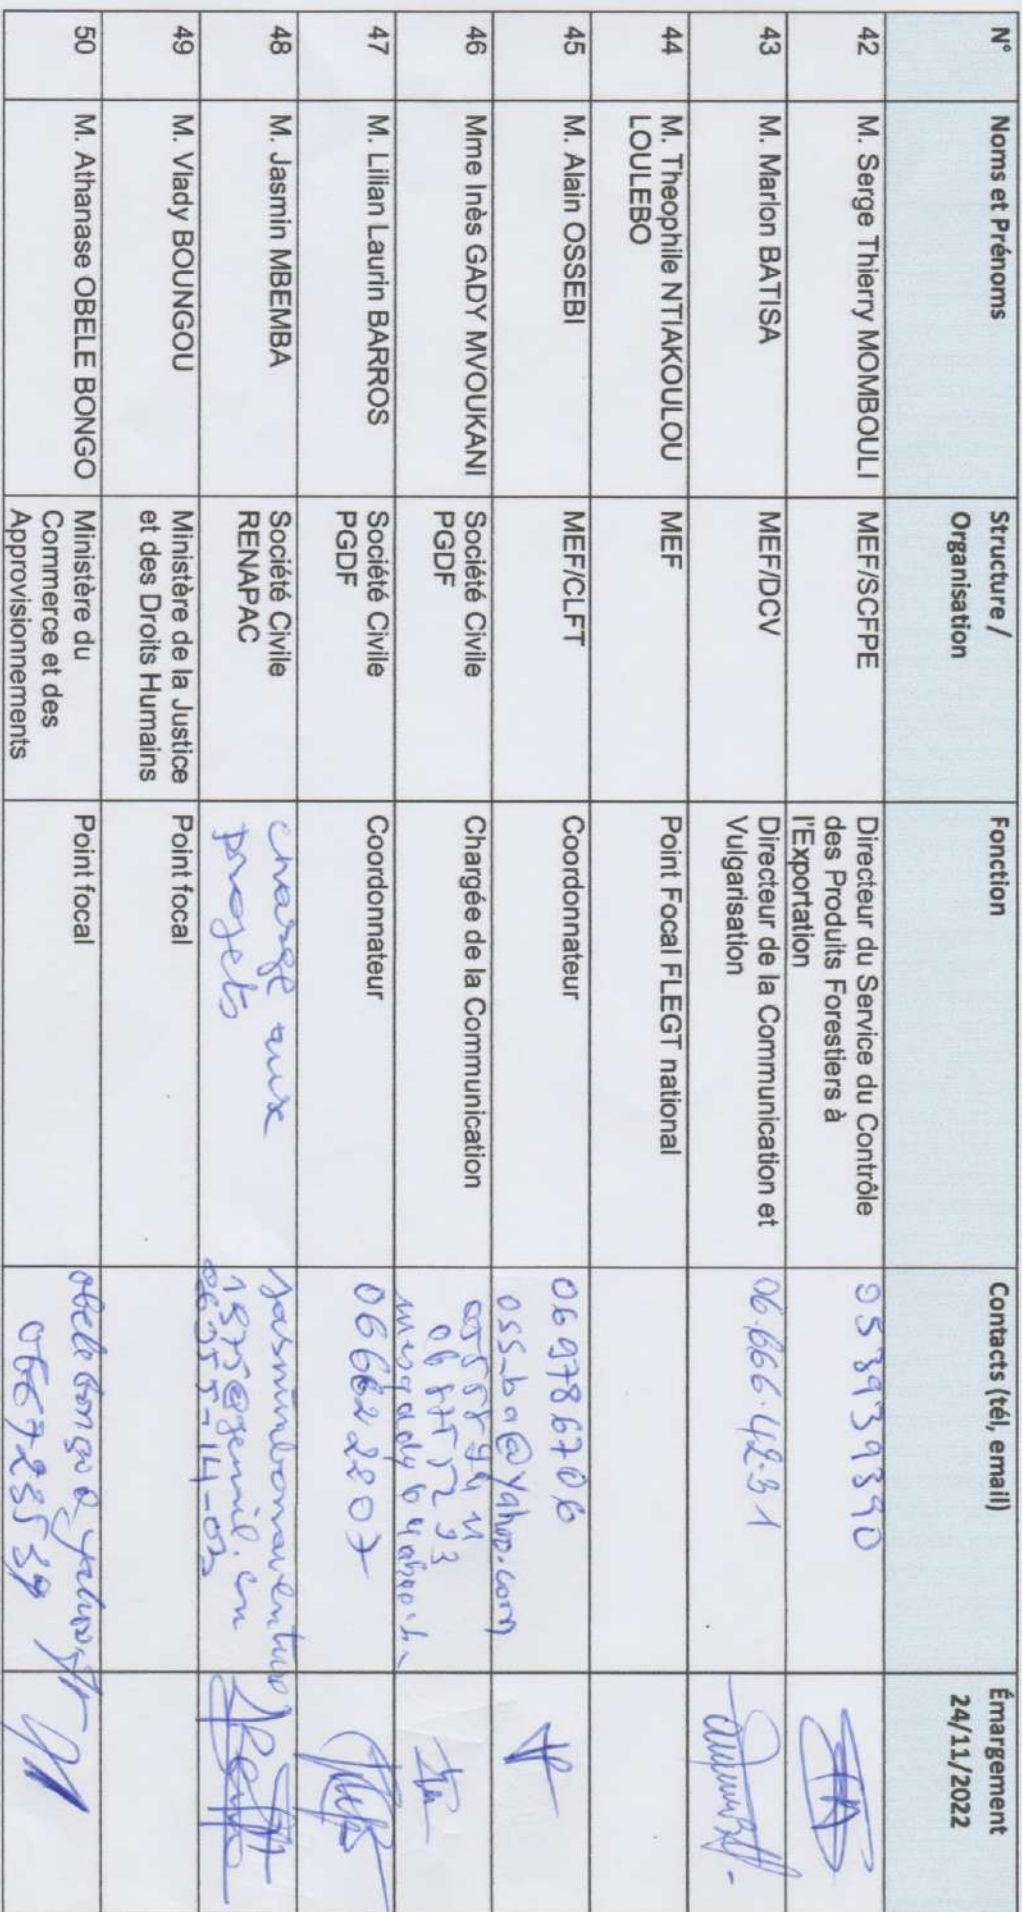 N° Noms et Prénoms Structure / Organisation Fonction Contacts (tél, email) Émargement 24/11/2022
42 M. Serge Thierry MOMBOULI MEF/SCFPE Directeur du Service du Contrôle
des Produits Forestiers à
l'Exportation
05 5393939 0
43 M. Marlon BATISA MEF/DCV Directeur de la Communication et
Vulgarisation
06.666.42.31
44 M. Theophile NTIAKOULOU
LOULEBO
MEF Point Focal FLEGT national
45 M. Alain OSSEBI MEF/CLFT Coordonnateur 069786706
oss_ba@yahoo.com
46 Mme Inès GADY MVOUKANI Société Civile
PGDF
Chargée de la Communication
47 M. Lilian Laurin BARROS Société Civile
PGDF
Coordonnateur 066622807
48 M. Jasmin MBEMBA Société Civile
RENAPAC
charge aux
projets
jasminbonaventure
1975@gmail.com
49 M. Vlady BOUNGOU Ministère de la Justice
et des Droits Humains
Point focal
50 M. Athanase OBELE BONGO Ministère du
Commerce et des
Approvisionnements
Point focal